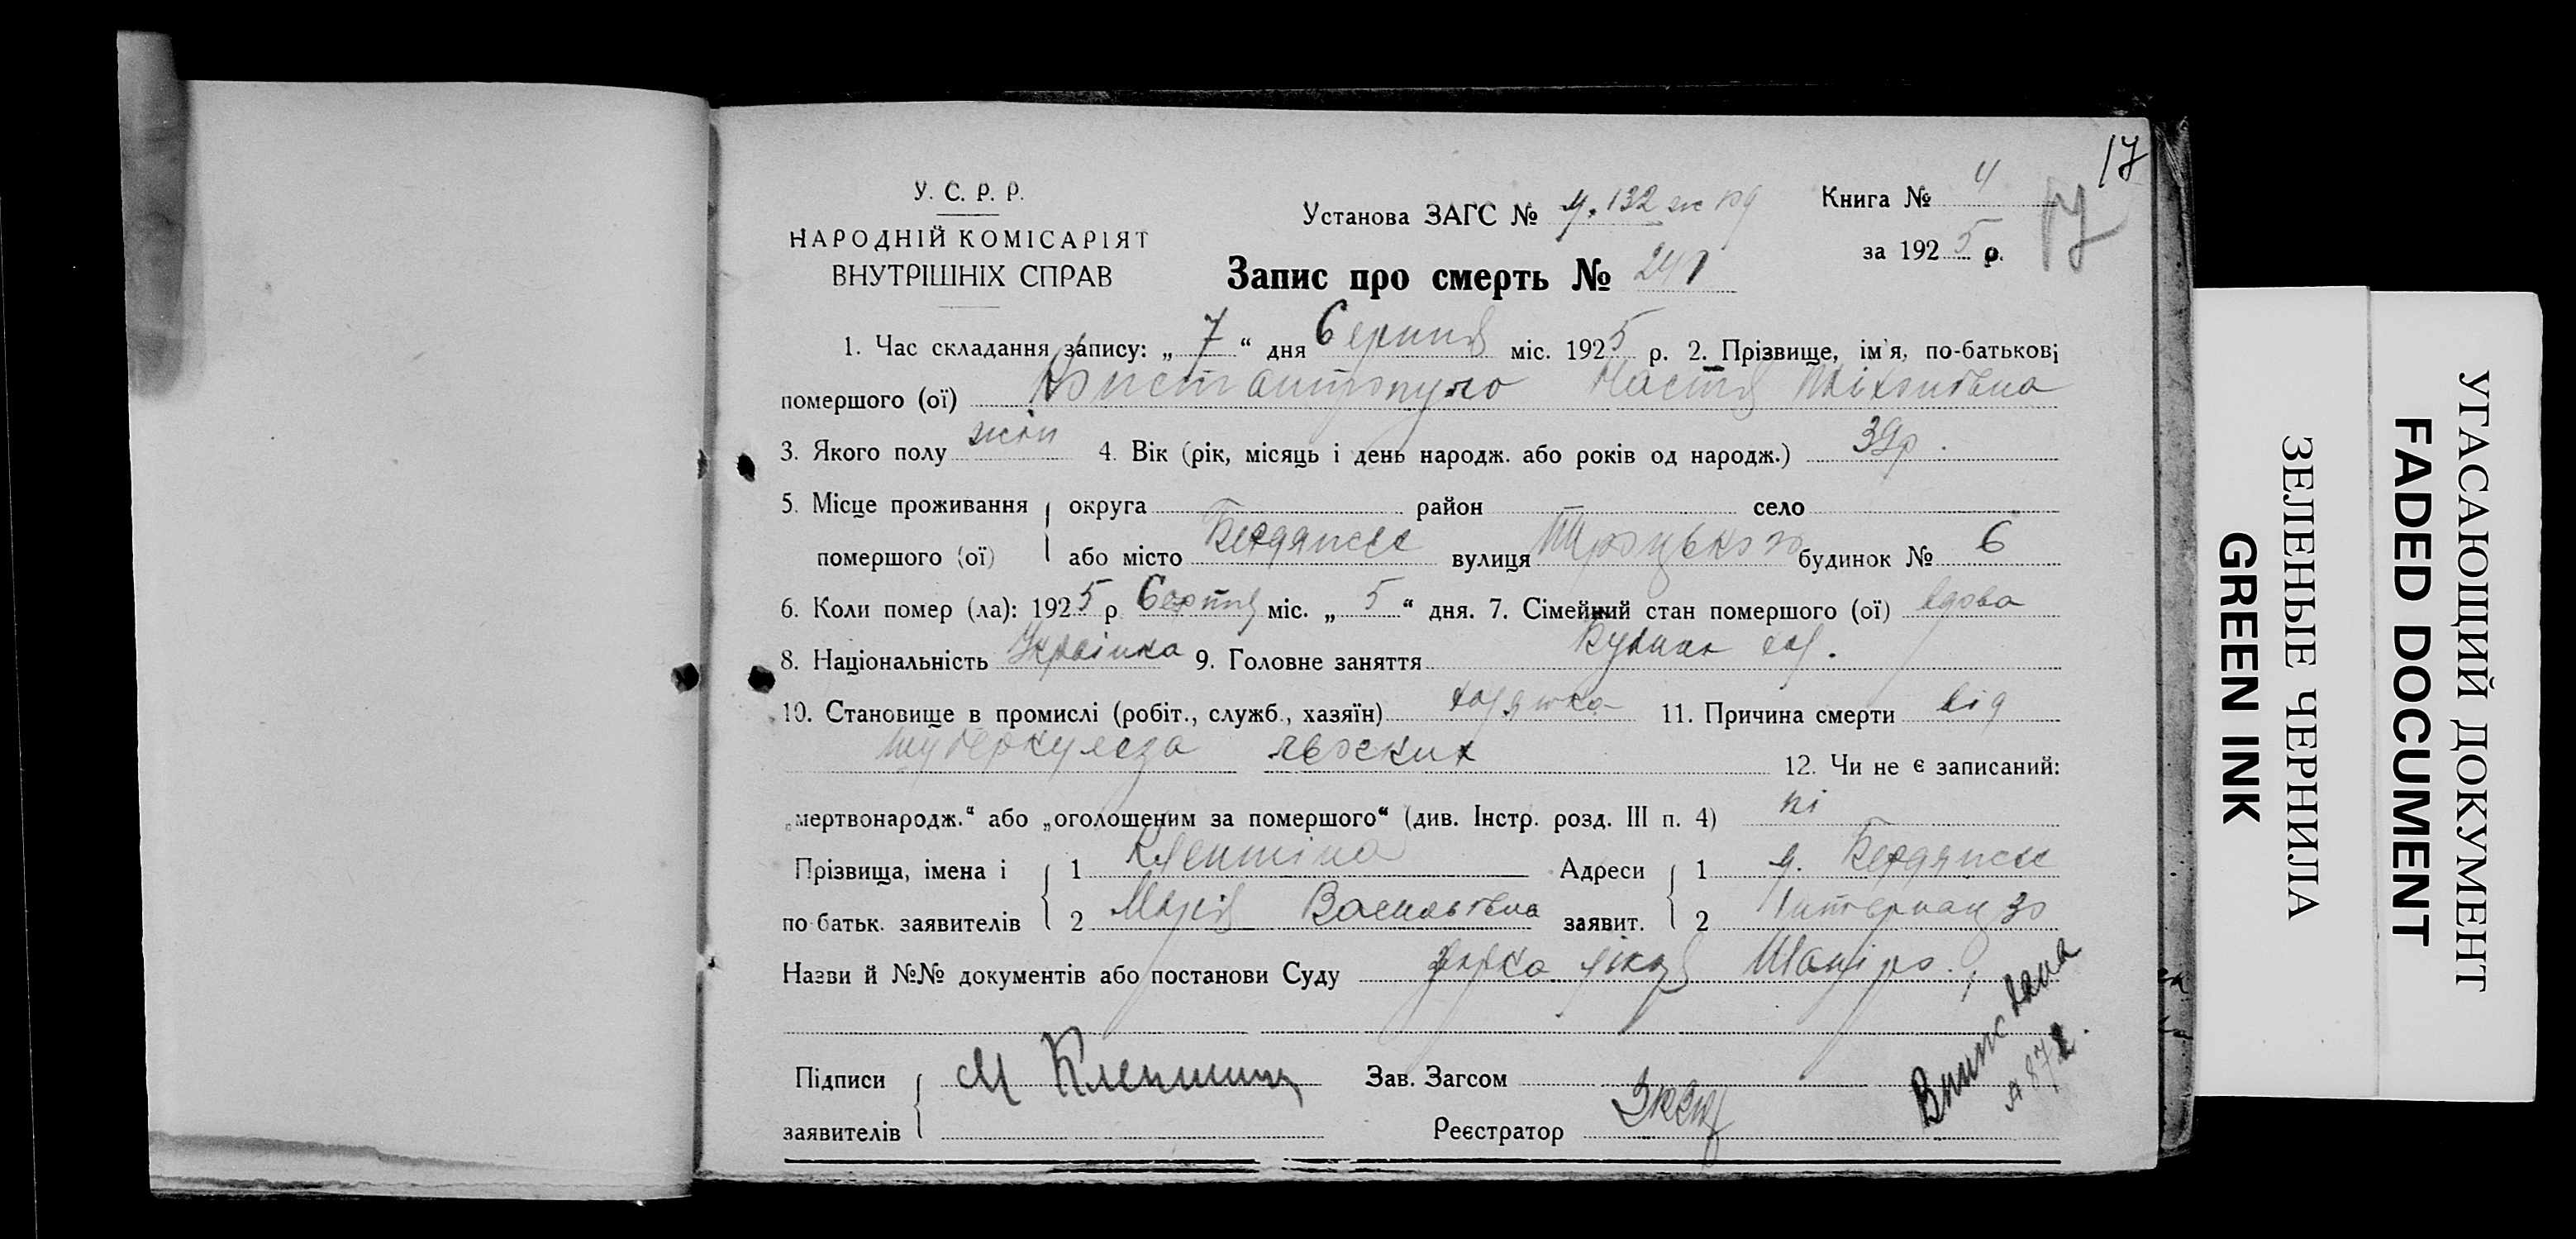 17
У. С. Р. Р.
НАРОДНІЙ КОМІСАРІЯТ
ВНУТРІШНІХ СПРАВ
Установа ЗАГС №
Книга № 4
17
за 1925 р.
Запис про смерть № 241
1. Час складання запису: „7“ дня Серпня міс. 1925 р. 2. Прізвище, ім'я, по-батькові
помершого (ої) Константопуло Настя
3. Якого полу жін 4. Вік (рік, місяць і день народж. або років од народж.) 39р.
5. Місце проживання округа район село
помершого (ої) або місто Бердянське вулиця Троцького будинок № 6
6. Коли помер (ла): 1925 р Серпня міс. „5“ дня. 7. Сімейний стан помершого (ої) вдова
8. Національність Українка 9. Головне заняття
10. Становище в промислі (робіт., служб., хазяїн) 11. Причина смерти від
туберкульоза
12. Чи не є записаний:
„мертвонародж.“ або „оголошеним за помершого“ (див. Інстр. розд. III п. 4) ні
Прізвища, імена і 1 Адреси 1 Бердянське
по-батьк. заявителів 2 Марія Васильовна заявит. 2 Інтернац 30
Назви й №№ документів або постанови Суду Шапіро.
Підписи М Зав. Загсом
заявителів Реєстратор
УГАСАЮЩИЙ ДОКУМЕНТ
FADED DOCUMENT
ЗЕЛЕНЫЕ ЧЕРНИЛА
GREEN INK